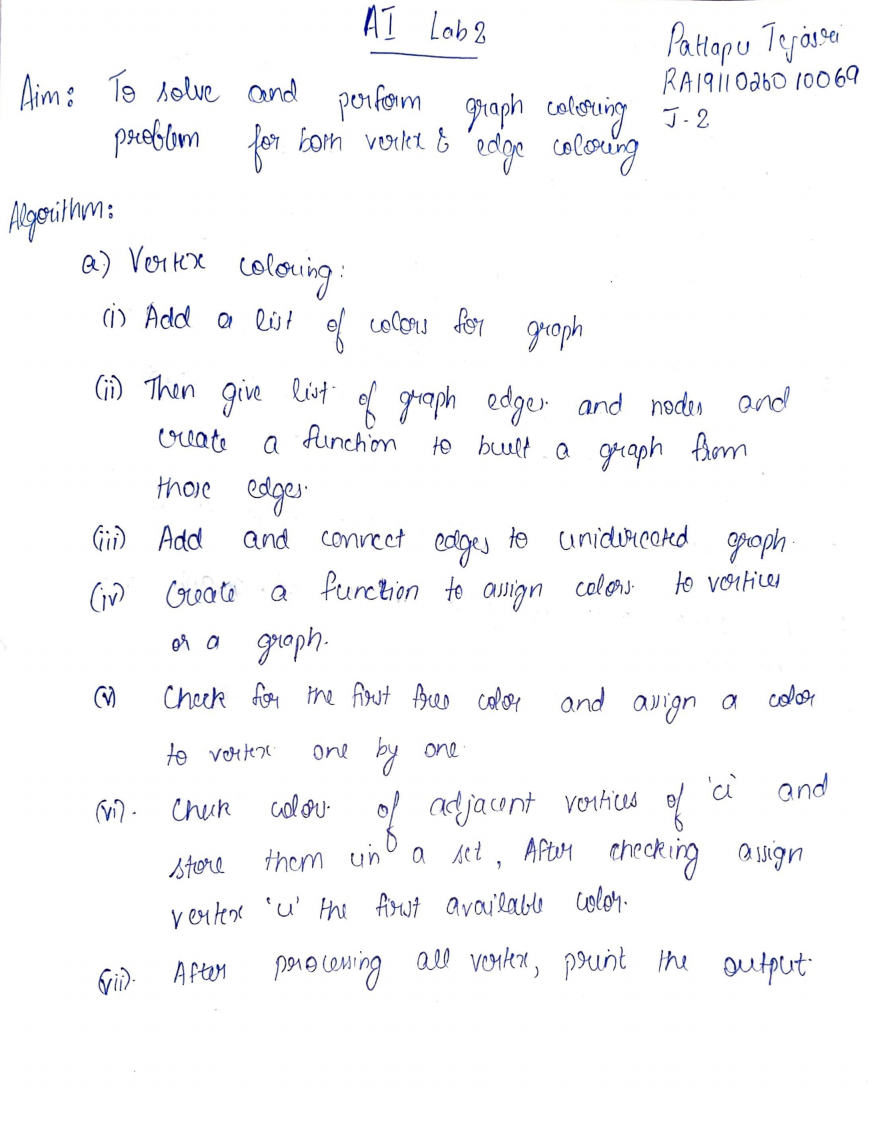 AI Lab 2
Pattapu Tejasri
RA1911026010069
J-2
Aim: To solve and perform graph coloring
problem for both vertex & edge coloring
Algorithm:
a) Vertex coloring:
(i) Add a list of colors for graph
(ii) Then give list of graph edges and nodes and
create a function to built a graph from
those edges.
(iii) Add and connect edges to unidirected graph.
(iv) Create a function to assign colors to vertices
or a graph.
(v) Check for the first free color and assign a color
to vertex one by one.
(vi). Check colour of adjacent vertices of 'u' and
store them in a set, After checking assign
vertex 'u' the first available color.
(vii). After processing all vertex, print the output.